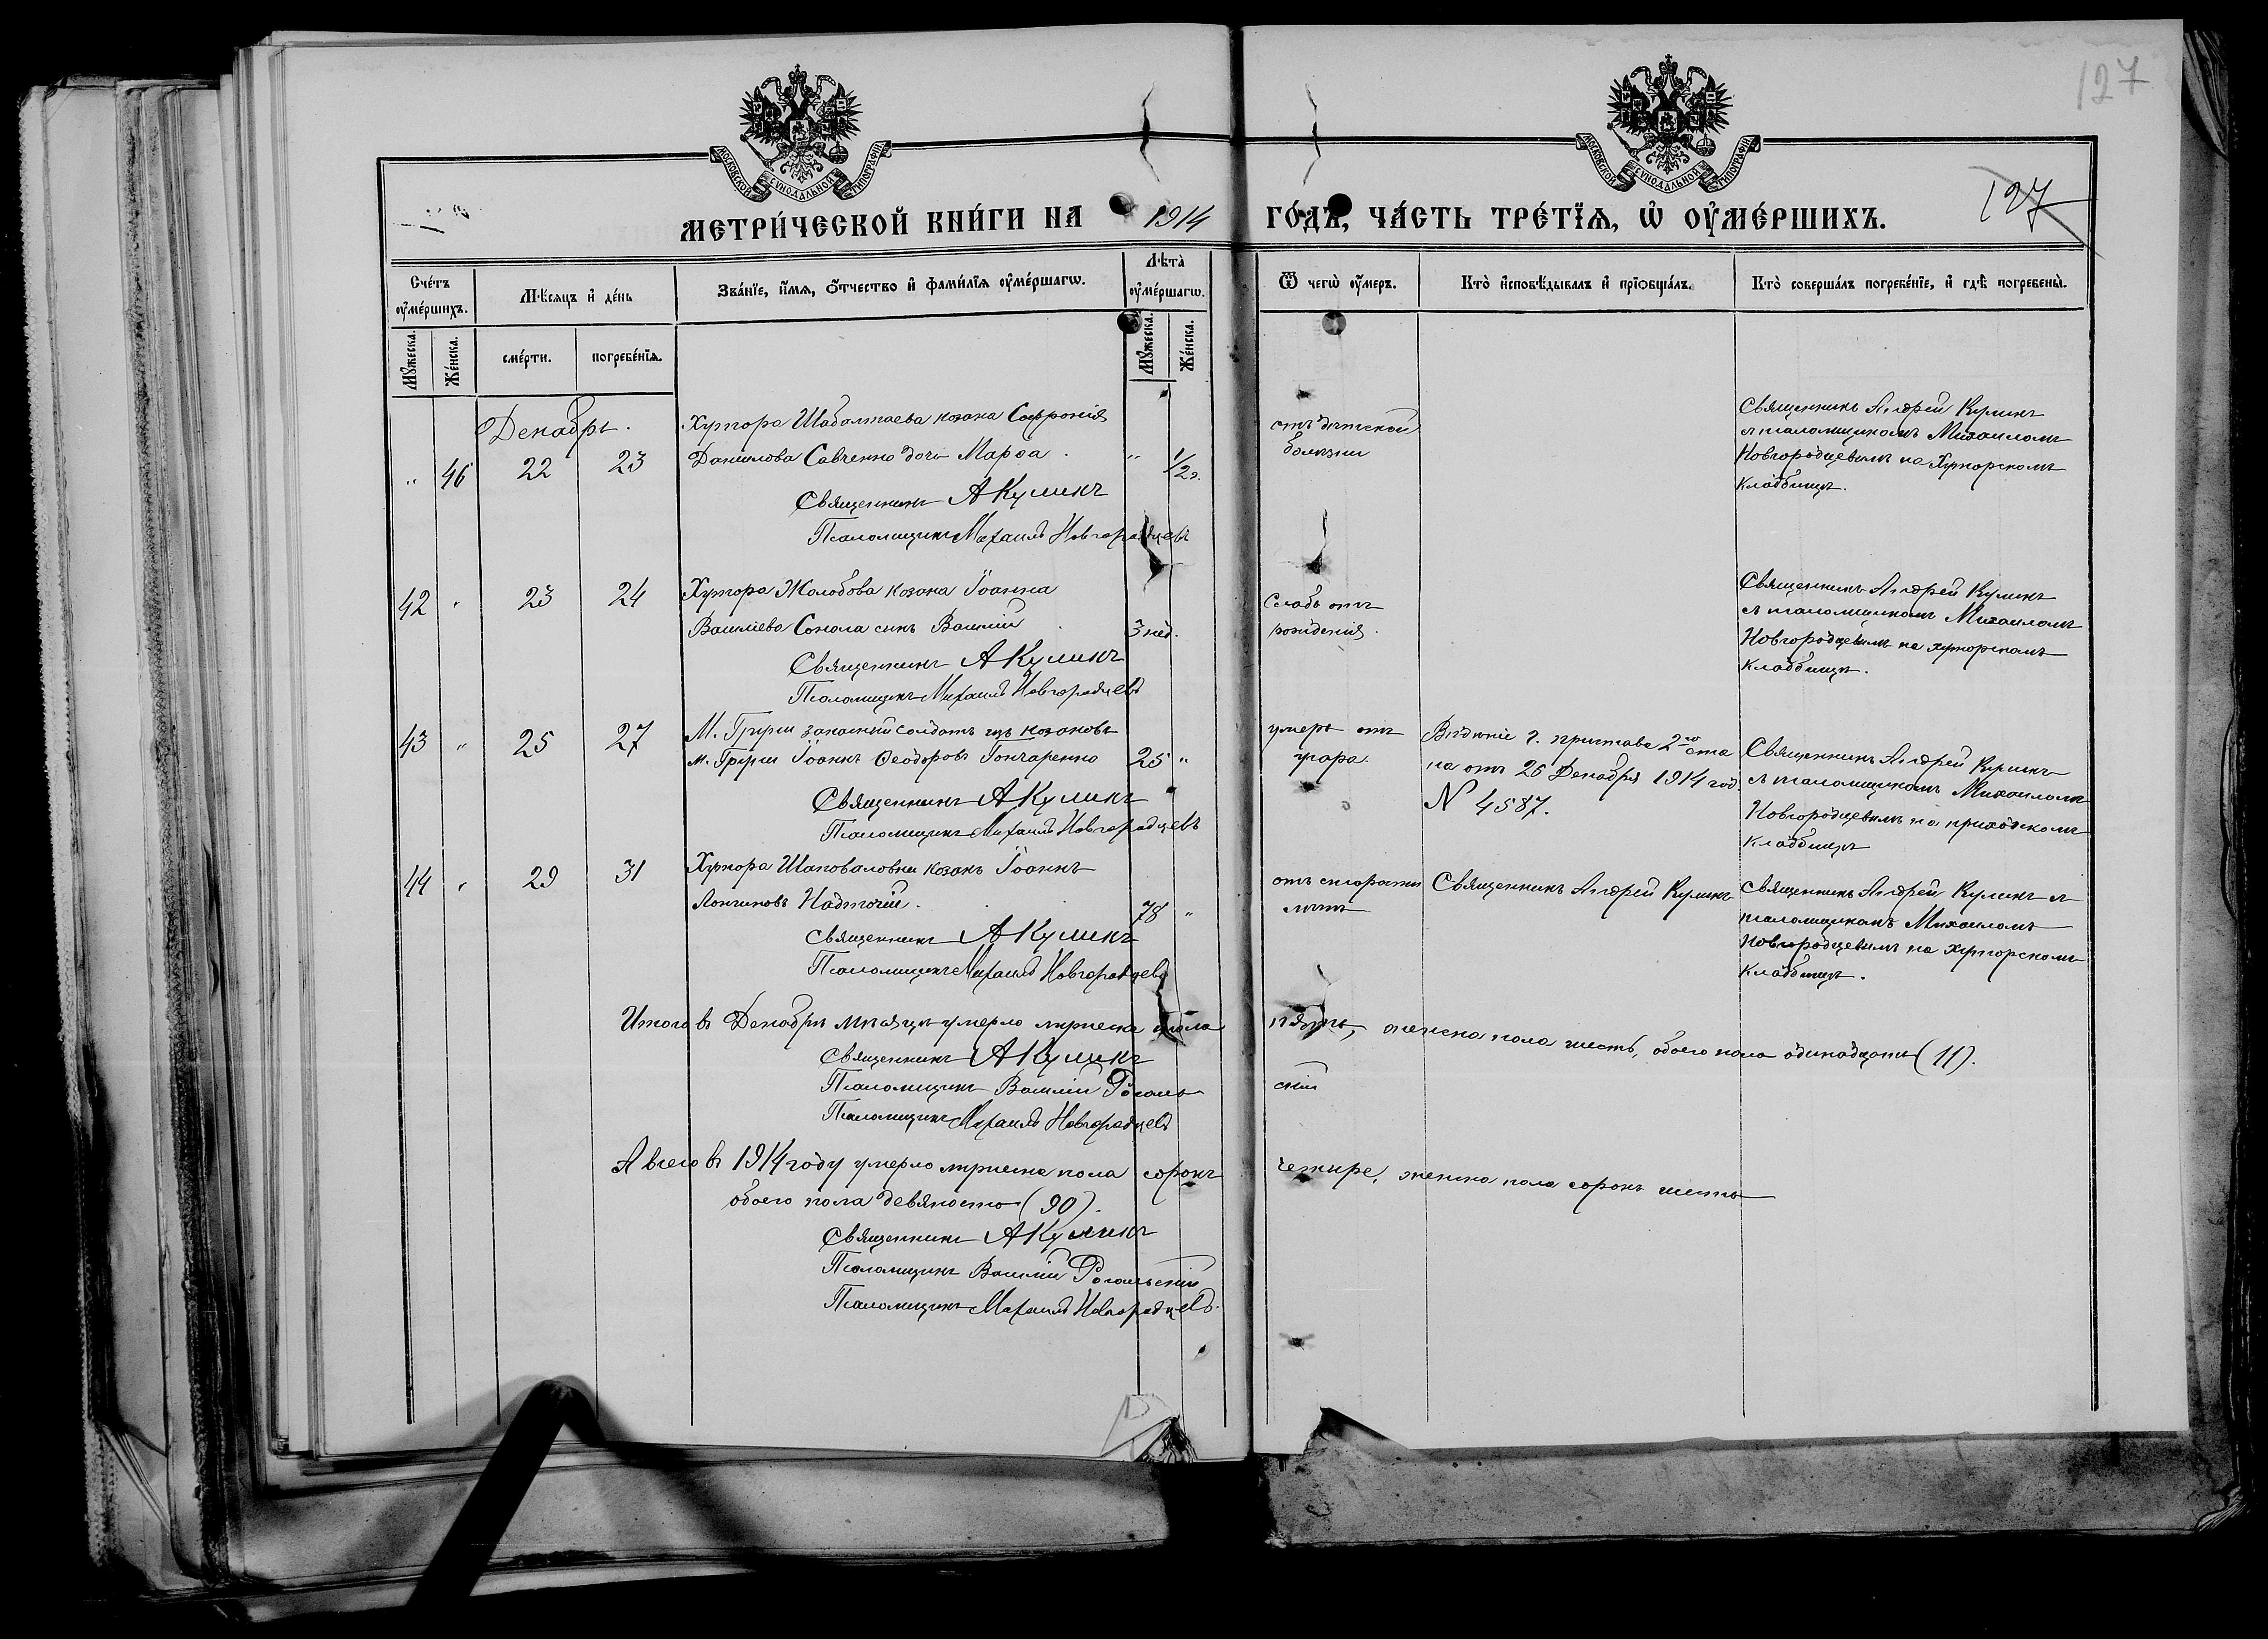 127
МОСКОВСКОЙ СѴНОДАЛЬНОЙ ТИПОГРАФІИ
МОСКОВСКОЙ СѴНОДАЛЬНОЙ ТИПОГРАФІИ
МЕТРИ́ЧЕСКОЙ КНИ́ГИ НА 1914 ГО́ДЪ, ЧА́СТЬ ТРЕ́ТЇѦ, Ѡ҆ ОУ҆МЕ́РШИХЪ.
127
Сче́тъ оу҆ме́ршихъ.
Мѣ́сяцъ и҆ де́нь
Зва́нїе, и҆́мя, ѻ҆́тчество и҆ фами́лїя оу҆ме́ршагѡ.
Лѣта̀ оу҆ме́ршагѡ.
Ѿ чегѡ̀ оу҆́меръ.
Кто̀ и҆сповѣ́дывалъ и҆ прїѡбща́лъ.
Кто̀ соверша́лъ погребе́нїе, и҆ гдѣ̀ погребены̀.
Мꙋ́жеска.
Же́нска.
сме́рти.
погребе́нїя.
Мꙋ́жеска.
Же́нска.
Декабрь.
„ 46 22 23
Хутора Шабалтаева козака Софронія
Данилова Савченко дочь Марѳа. „ 1/2 г.
Священникъ А Куликъ
Псаломщикъ Михаилъ Новгородцевъ
отъ дѣтской
болѣзни
Священникъ Андрей Куликъ
съ псаломщикомъ Михаиломъ
Новгородцевымъ на хуторскомъ
кладбищѣ.
42 „ 23 24
Хутора Жолобова козака Іоанна
Василіева Сокола сынъ Василій 3 нед.
Священникъ А Куликъ
Псаломщикъ Михаилъ Новгородцевъ
Слабъ отъ
рожденія.
Священникъ Андрей Куликъ
съ псаломщикомъ Михаиломъ
Новгородцевымъ на хуторскомъ
кладбищѣ.
43 „ 25 27
М. Груни запасный солдатъ изъ козаковъ
м. Груни Іоаннъ Ѳеодоровъ Гончаренко 25 „
Священникъ А Куликъ
Псаломщикъ Михаилъ Новгородцевъ
умеръ отъ
угара.
Вѣдѣніе г. пристава 2го ста
на отъ 26 Декабря 1914 год.
N 4587.
Священникъ Андрей Куликъ
съ псаломщикомъ Михаиломъ
Новгородцевымъ на приходскомъ
кладбищѣ
44 „ 29 31
Хутора Шаповаловки козакъ Іоаннъ
Лонгиновъ Надточій. 78 „
Священникъ А Куликъ
Псаломщикъ Михаилъ Новгородцевъ
отъ старости
лѣтъ
Священникъ Андрей Куликъ
Священникъ Андрей Куликъ съ
псаломщикомъ Михаиломъ
Новгородцевымъ на хуторскомъ
кладбищѣ.
Итого въ Декабрѣ мѣсяцѣ умерло мужеска пола пять, женска пола шесть, обоего пола одинадцать (11).
Священникъ А Куликъ
Псаломщикъ Василій Рогальскій
Псаломщикъ Михаилъ Новгородцевъ
А всего въ 1914 году умерло мужеска пола сорокъ четыре, женска пола сорокъ шесть
обоего пола девяносто (90).
Священникъ А Куликъ
Псаломщикъ Василій Рогальскій
Псаломщикъ Михаилъ Новгородцевъ.